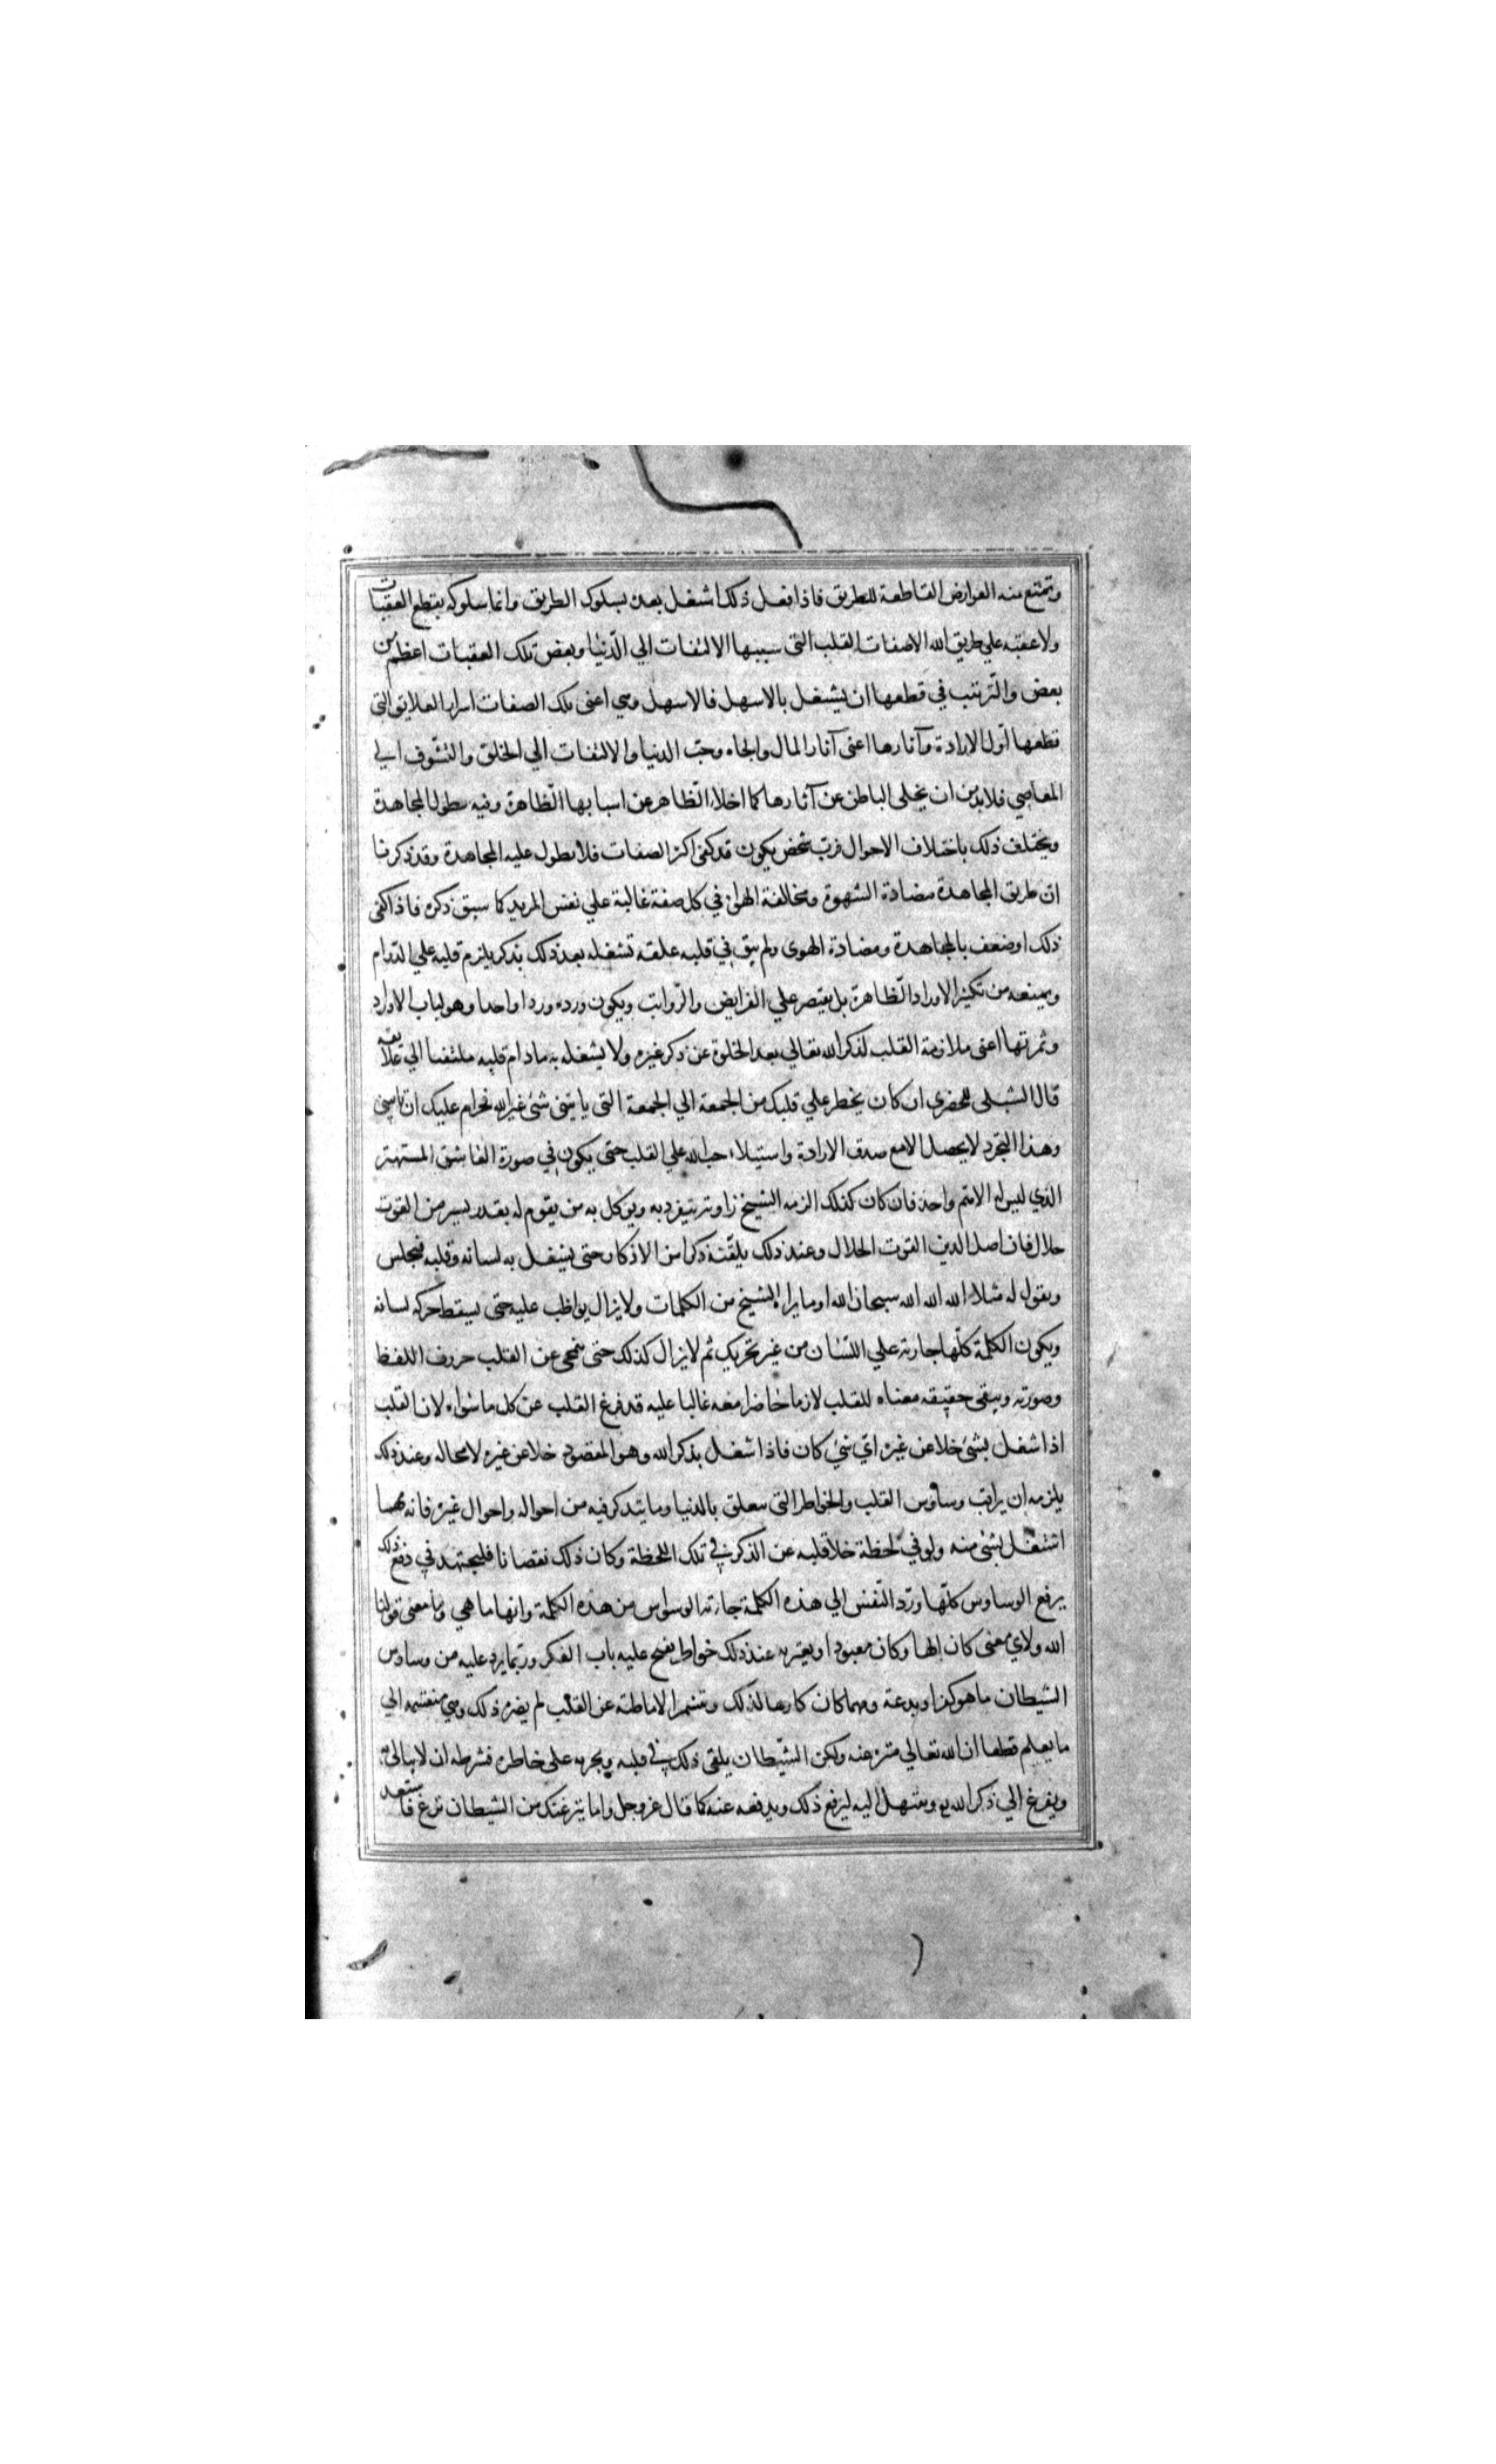 وتمنع منه العوارض القاطعة للطريق فاذا فعل ذلك اشتغل بعده بسلوك الطريق وانما سلوكه بقطع العقبات
ولا عقبة علي طريق الله الا صفات القلب التي سببها الالتفات الي الدّنيا وبعض تلك العقبات اعظم من
بعض والتّرتيب في قطعها ان يشتغل بالاسهل فالاسهل وهي اعني تلك الصفات اسرار العلايق التي
قطعها اوّل الارادة وآثارها اعني آثار المال والجاه وحبّ الدنيا والالتفات الي الخلق والتشّوف الي
المعاصي فلا بد من ان يخلي الباطن عن آثارها كما اخلاء الظاهر عن اسبابها الظّاهرة وفيه يطول المجاهدة
ويختلف ذلك باختلاف الاحوال فربّ شخص يكون قد كفي اكثر الصفات فلا يطول عليه المجاهدة وقد ذكرنا
ان طريق المجاهدة مضادة الشهوة ومخالفة الهوي في كل صفة غالبة علي نفس المريد كما سبق ذكره فاذا كفي
ذلك او ضعف بالمجاهدة ومضادة الهوى ولم يبق في قلبه علقة تشغله بعد ذلك بذكر يلزم قلبه علي الدّوام
ويمنعه من تكثير الاوراد الظّاهرة بل يقتصر علي الفرايض والرّواتب ويكون ورده وردا واحدا وهو لباب الاوراد
وثمرتها اعني ملازمة القلب لذكر الله تعالي بعد الخلوة عن ذكر غيره ولا يشغله به مادام قلبه ملتفتا الي علايقه
قال الشبلي للحضري ان كان يخطر علي قلبك من الجمعة الي الجمعة التي ياتيني شئ غير الله فحرام عليك ان تاتيني
وهذا التجرد لا يحصل الا مع صدق الارادة واستيلاء حب الله علي القلب حتى يكون في صورة العاشق المستهتر
الذي ليس له الا همّ واحد فان كان كذلك الزمه الشيخ زاوية ينفرد به ويوكل به من يقوم له بقدر يسير من القوت
حلال فان اصل الدين القوت الحلال وعند ذلك يلقّنه ذكرا من الاذكار حتى يشغل به لسانه وقلبه فيجلس
ويقول له مثلا الله الله الله سبحان الله او ما يراه الشيخ من الكلمات ولا يزال يواظب عليه حتى يسقط حركة لسانه
ويكون الكلمة كلّها جارية علي اللّسان من غير تحريك ثم لا يزال كذلك حتى ينمحى عن القلب حروف اللفظ
وصورته ويبقى حقيقة معناه للقلب لازما حاضرا معه غالبا عليه قد فرغ القلب عن كل ما سواه لان القلب
اذا شغل بشئ خلا عن غيره ايّ شئ كان فاذا شغل بذكر الله وهو المقصود خلا عن غيره لا محاله وعند ذلك
يلزمه ان يراقب وساوس القلب والخواطر التي تتعلق بالدنيا وما يتذكر فيه من احواله واحوال غيره فانه مهما
اشتغل بشئ منه ولو في لحظة خلا قلبه عن الذكر في تلك اللحظة وكان ذلك نقصانا فليجتهد في دفع ذلك
يرفع الوساوس كلّها وردّ النّفس الي هذه الكلمة جاءته الوسواس من هذه الكلمة وانها ما هي وما معنى قولنا
الله ولاي معني كان الها وكان معبودا ويعتريه عند ذلك خواطر يفتح عليه باب الفكر وربّما يرد عليه من وساوس
الشيطان ما هو كفرا وبدعة ومهما كان كارها لذلك ومتشمرا لاماطته عن القلب لم يضره ذلك وهي منقسمة الي
ما يعلم قطعا ان الله تعالي منزه عنه ولكن الشّيطان يلقى ذلك في قلبه ويجريه على خاطره فشرطه ان لا يبالي به
ويفرغ الي ذكر الله ويبتهل اليه ليرفع ذلك ويدفعه عنه كما قال عز وجل واما ينزغنك من الشيطان نزغ فاستعد